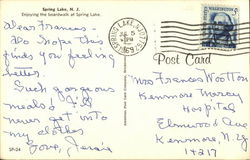 Spring Lake, N. J.
Enjoying the boardwalk at Spring Lake.
Dear Frances -
Do hope this
finds you feeling
better.
Such gorgeous
meals I'll
never get into
my clothes
Love, Jessie
SPRING LAKE
JUL 5
1969
WASHINGTON
5¢
Post Card
Mrs Frances Wootton
Kenmore Mercy
Hospital
Elmwood Ave
Kenmore, N.Y.
14217